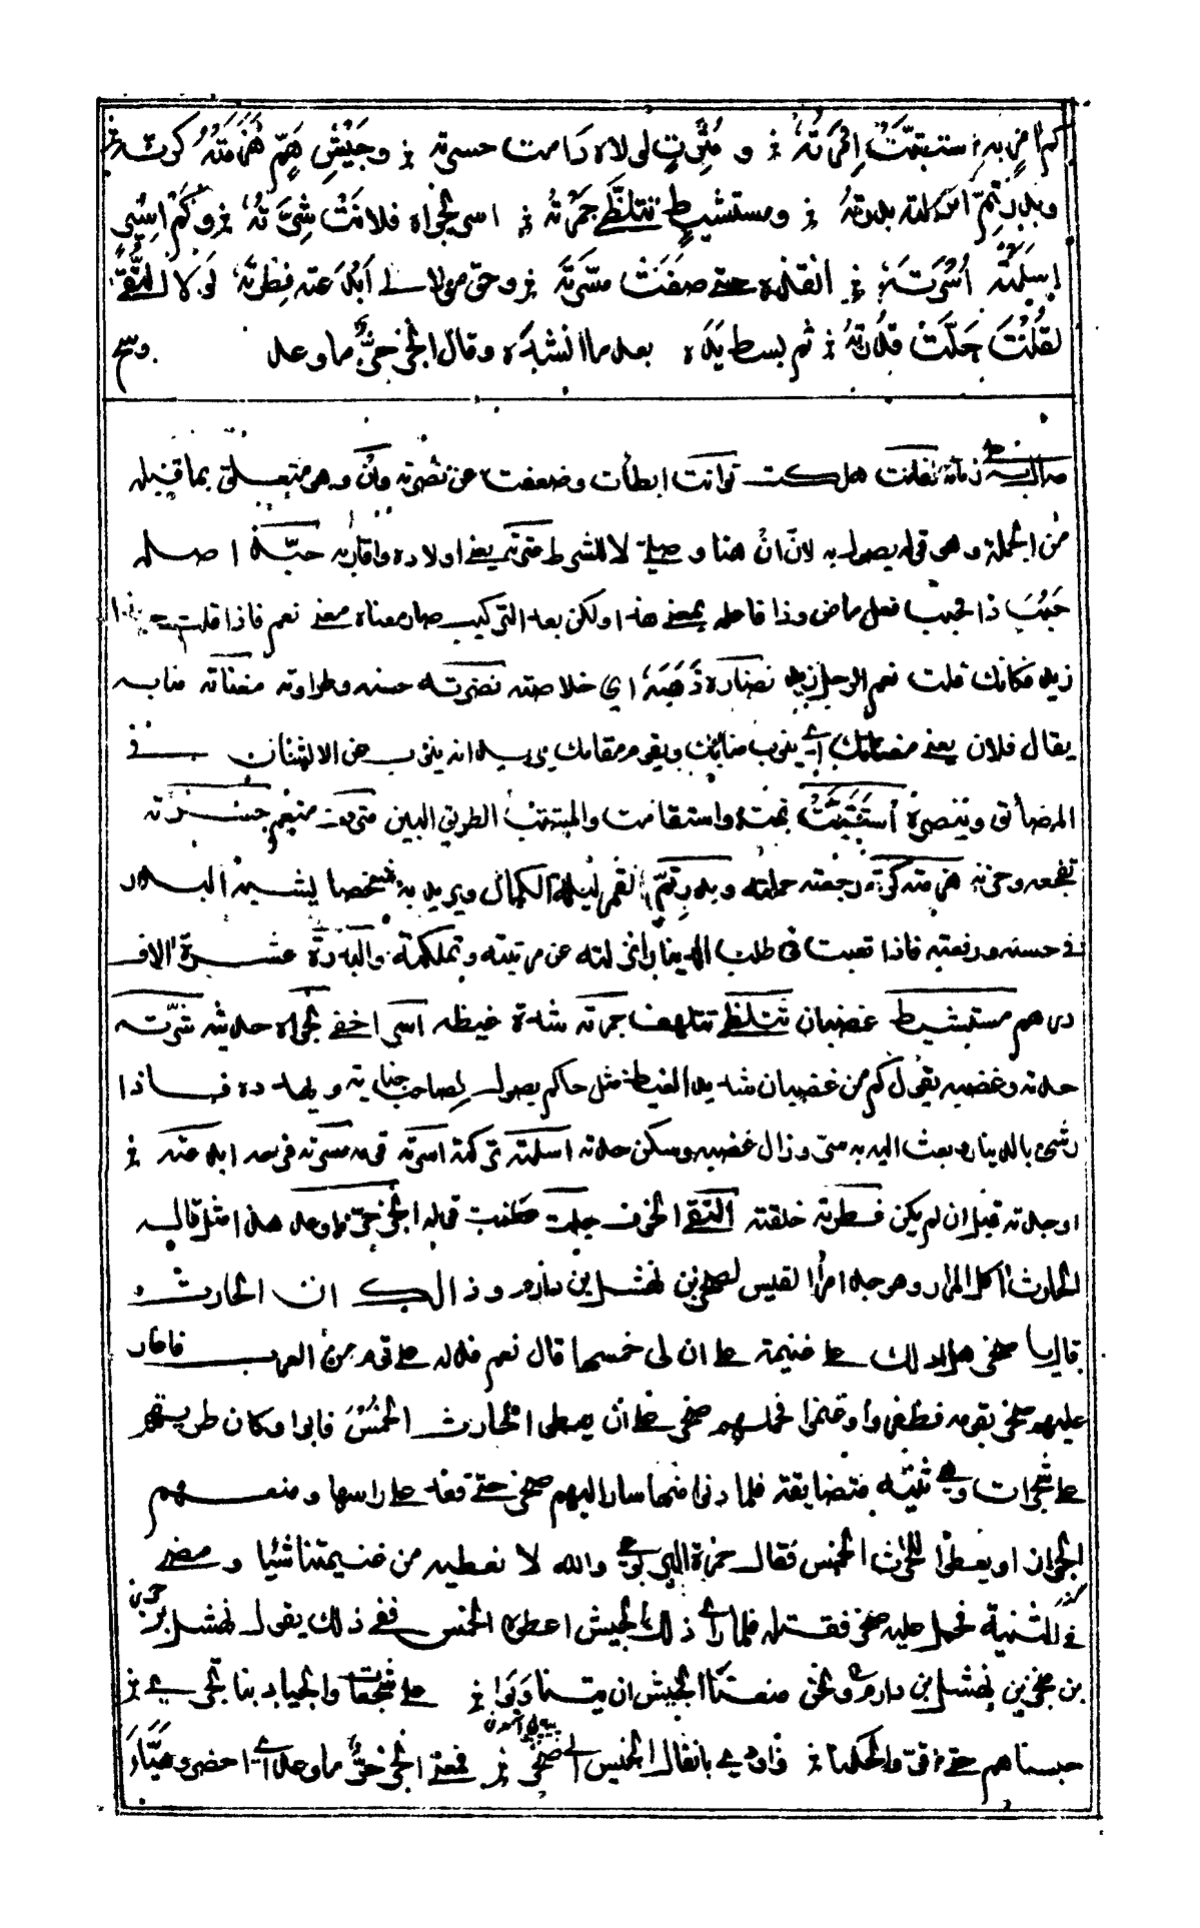 كم امر به استتبت امرته ومترف لولاه دامت حسرته وجيش هم هزمته كرته
وبدر تم انزلته بدرته ومستشيط تتلظى جمرته اسر نجواه فلانت شرته وكم اسير
اسلمته اسرته انقذه حتى صفت مسرته وحق مولى ابدعته فطرته لولا التقى
لقلت جلت قدرته ثم بسط يده بعد ما انشده وقال انجز حر ما وعد وسح
هلكت توانت ابطأت وضعفت عن نصرته وان وهو متعلق بما قبله
من الجملة وهو قوله يصول به لان ان هنا وصلية لا للشرط عترته يعني اولاده واقاربه حبذا اصله
حبب ذا فحبب فعل ماض وذا فاعله بمعنى هذا ولكن بعد التركيب صار معناه معنى نعم فاذا قلت حبذا
زيد فكانك قلت نعم الرجل زيد نضاره ذهبه اي خلاصته نضرته حسنه وطراوته مغناته منابه
يقال فلان يغني مغناتك اي ينوب منابك ويقوم مقامك يريد انه ينوب عن الانسان في
المضائق وينصره استتبت تمت واستقامت والمستتب الطريق البين مترف منعم حسرته
تفجعه وحزنه هزمته كرته رجعته حملته وبدر تم القمر ليلة الكمال ويريد به شخصا يشبه البدر
في حسنه ورفعته فاذا تعبت في طلب الدينار انزلته عن مرتبته وتملكته والبدرة عشرة الاف
درهم مستشيط غضبان تتلظى تتلهف جمرته شدة غيظه اسر اخفى نجواه حديثه شرته
حدته وغضبه يقول كم من غضبان شديد الغيظ مثل حاكم يصول لصاحب جناية ويهدده فاذا
رشي بالدينار وبعث اليه به سرا زال غضبه وسكن حدته اسلمته تركته اسرته قومه مسرته فرحه ابدعته
اوجدته قبل ان لم يكن فطرته خلقته التقى الخوف جلت عظمت قوله انجز حر ما وعد هذا مثل قاله
الحارث اكل المرار وهو جد امرأ القيس لصخر بن نهشل بن دارم وذالك ان الحارث
قال يا صخر هل ادلك على غنيمة على ان لي خمسها قال نعم فدله على قوم من العرب فاغار
عليهم صخر بقومه فظفروا وغنموا فحملهم صخر على ان يعطى الحارث الخمس فابوا وكان طريقهم
على شجرات وهي ثنية متضايقة فلما دنوا منها سار اليهم صخر حتى قعد على راسها ومنعهم
الجواز او يعطوا للحارث الخمس فقال حمزة اليربوعي والله لا نعطيه من غنيمتنا شيئا ومضى
في الثنية فحمل عليه صخر فقتله فلما راى ذلك الجيش اعطوه الخمس ففي ذلك يقول نهشل بن
بن صخر بن نهشل بن دارم ونحن منعنا الجيش ان يتناوبوا على شجعات والجياد بنا تجري
حبسناهم حتى اقروا بحكمنا وادي بانفال الخميس الى صخر فمعنى انجز حر ما وعد اي احضر وهيأ